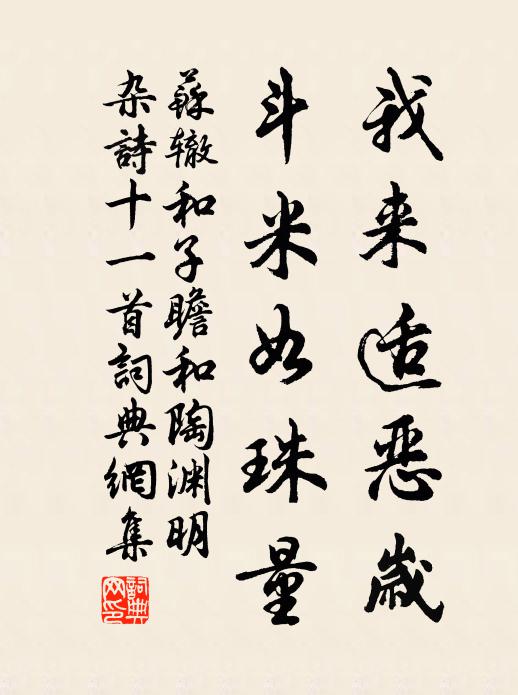 我来适恶歳
斗米如珠量
蘇辙和子瞻和陶渊明
杂詩十一首詞典網集
詞典網印